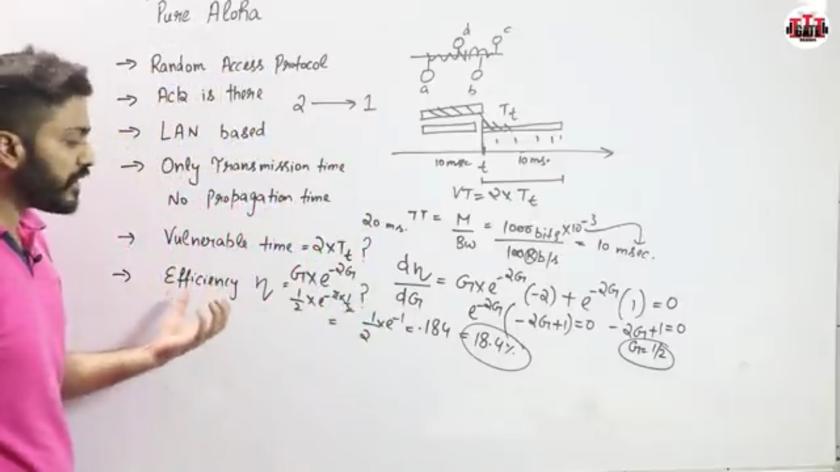 Pure Aloha
→ Random Access Protocol
→ Ack is there
2 → 1
→ LAN based
→ Only Transmission time
No Propagation time
→ Vulnerable time = 2xTt ?
→ Efficiency η = Gxe^-2G ?
1/2 x e^-2x1/2
= 1/2 x e^-1 = .184 = 18.4%
d c
a b
Tt
10 msec t 10 ms.
VT = 2x Tt
20 ms. TT = M/BW = 1000 bits x10^-3 / 100 b/s = 10 msec.
dη/dG = Gxe^-2G (-2) + e^-2G (1) = 0
e^-2G (-2G+1) = 0 -2G+1=0
G=1/2
GATE